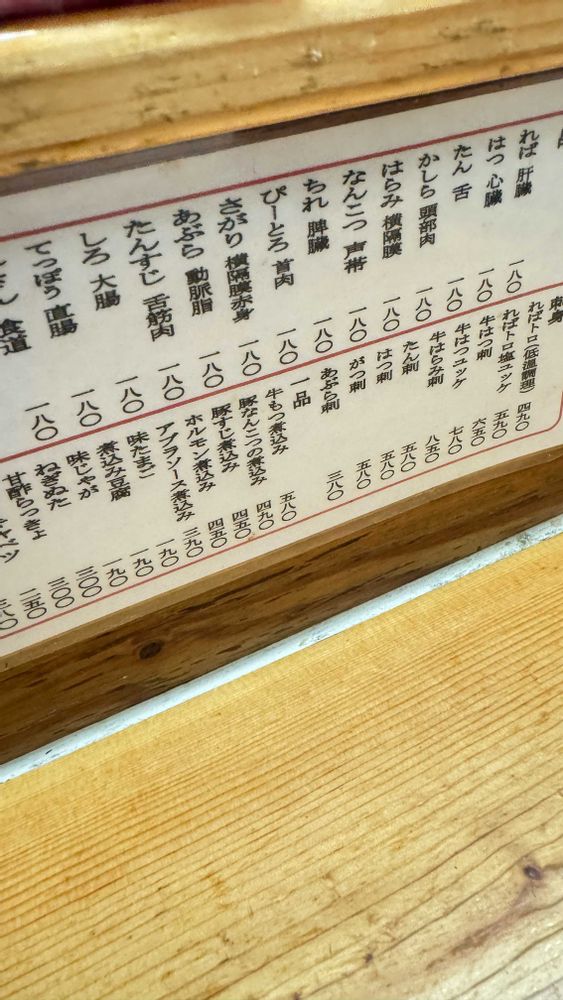 れば 肝臓 一八〇
はつ 心臓 一八〇
たん 舌 一八〇
かしら 頭部肉 一八〇
はらみ 横隔膜 一八〇
なんこつ 声帯 一八〇
ちれ 脾臓 一八〇
ぴーとろ 首肉 一八〇
さがり 横隔膜赤身 一八〇
あぶら 動脈脂 一八〇
たんすじ 舌筋肉 一八〇
しろ 大腸 一八〇
てっぽう 直腸 一八〇
食道 一八〇
刺身
ればトロ(低温調理) 四九〇
ればトロ塩ユッケ 五九〇
牛はつ刺 六五〇
牛はつユッケ 七八〇
牛はらみ刺 八五〇
たん刺 五八〇
はつ刺 五八〇
がつ刺 五八〇
あぶら刺 三八〇
一品
牛もつ煮込み 五八〇
豚なんこつの煮込み 四九〇
豚すじ煮込み 四五〇
ホルモン煮込み 四五〇
アブラソース煮込み 三九〇
味たまご 一九〇
煮込み豆腐 一九〇
味じゃが 一九〇
ねぎぬた 三〇〇
甘酢らっきょ 三〇〇
二五〇